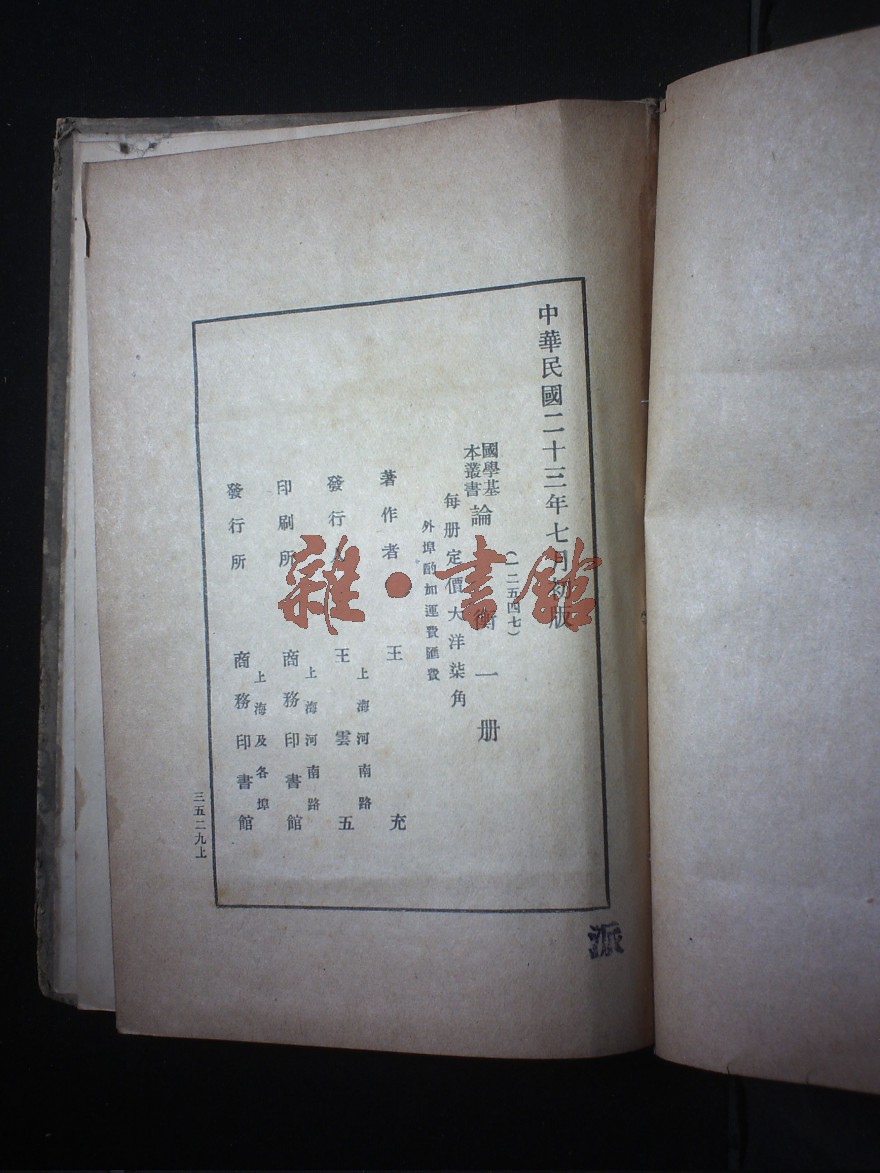 中華民國二十三年七月初版
(一二五四七)
國學基本叢書 論衡 一册
每册定價大洋柒角
外埠酌加運費匯費
著作者 王充
發行人 王雲五
上海河南路
印刷所 商務印書館
上海河南路
發行所 商務印書館
上海及各埠
三五二九上
派
雜·書館